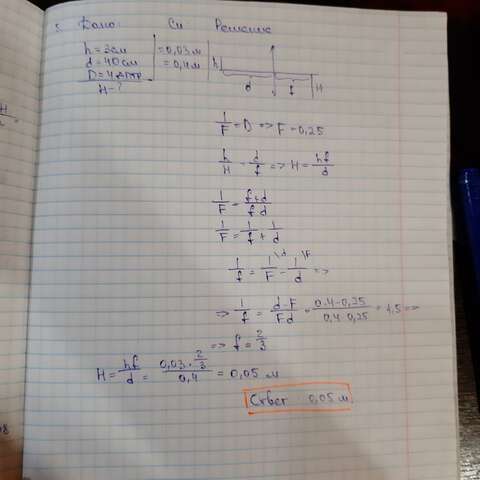 5. Дано: Си Решение
h = 3см = 0,03 м
d = 40 см = 0,4 м
D = 4 дптр
H - ?
h d f H
1/F = D => F = 0,25
h/H = d/f => H = hf/d
1/F = f+d/fd
1/F = 1/f + 1/d
1/f = 1/F \d - 1/d \F =>
=> 1/f = d-F/Fd = 0.4-0,25/0,4·0,25 = 1,5 =>
=> f = 2/3
H = hf/d = 0,03·2/3/0,4 = 0,05 м
Ответ 0,05 м.